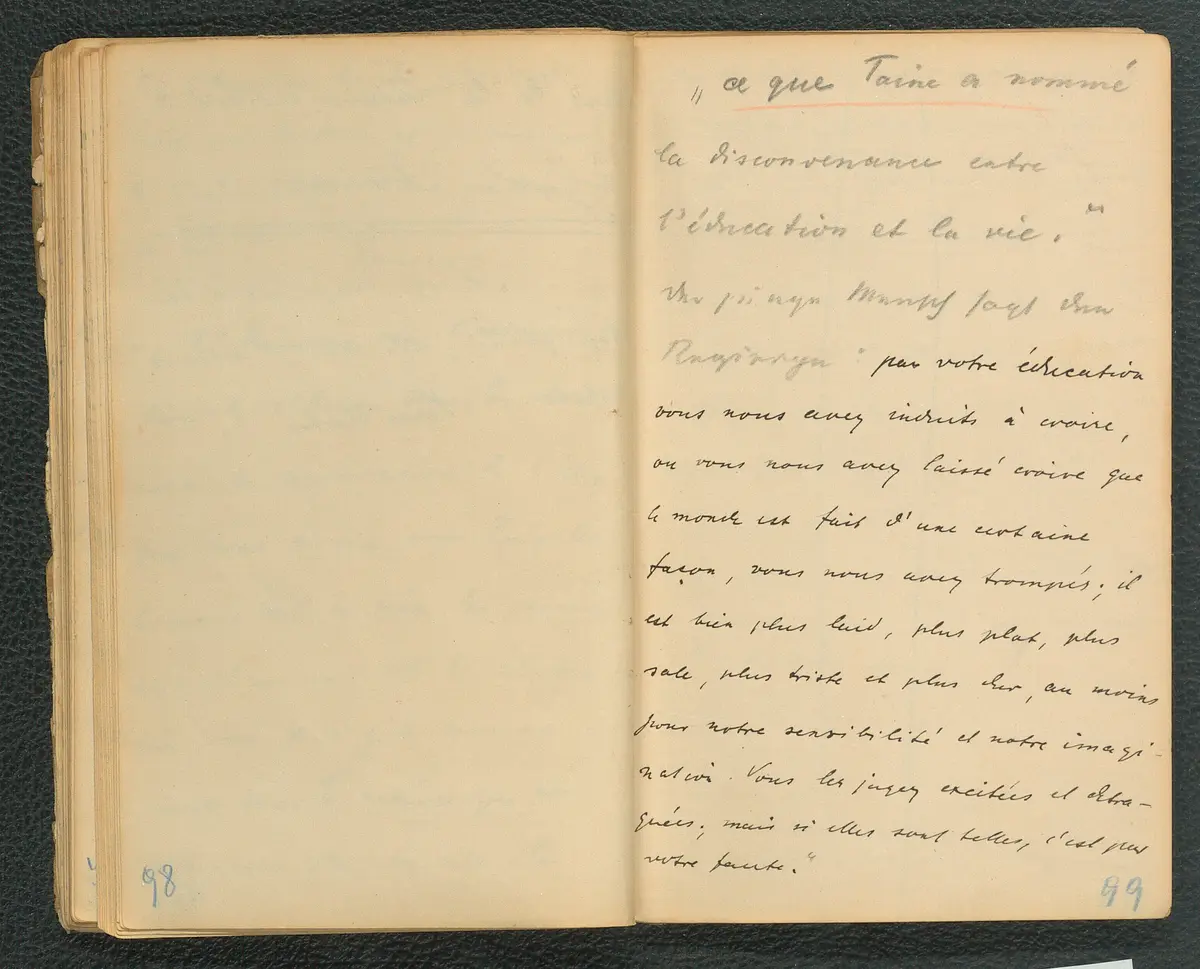 „ ce que Taine a nommé
la disconvenance entre
l'éducation et la vie. "
Der junge Mensch sagt den
par votre éducation
vous nous avez induits à croire,
ou vous nous avez laissé croire que
le monde est fait d'une certaine
façon, vous nous avez trompés; il
est bien plus laid, plus plat, plus
sale, plus triste et plus dur, au moins
pour notre sensibilité et notre imagi-
nation. Vous les jugez excitées et détra-
quées; mais si elles sont telles, c'est par
votre faute."
98
99